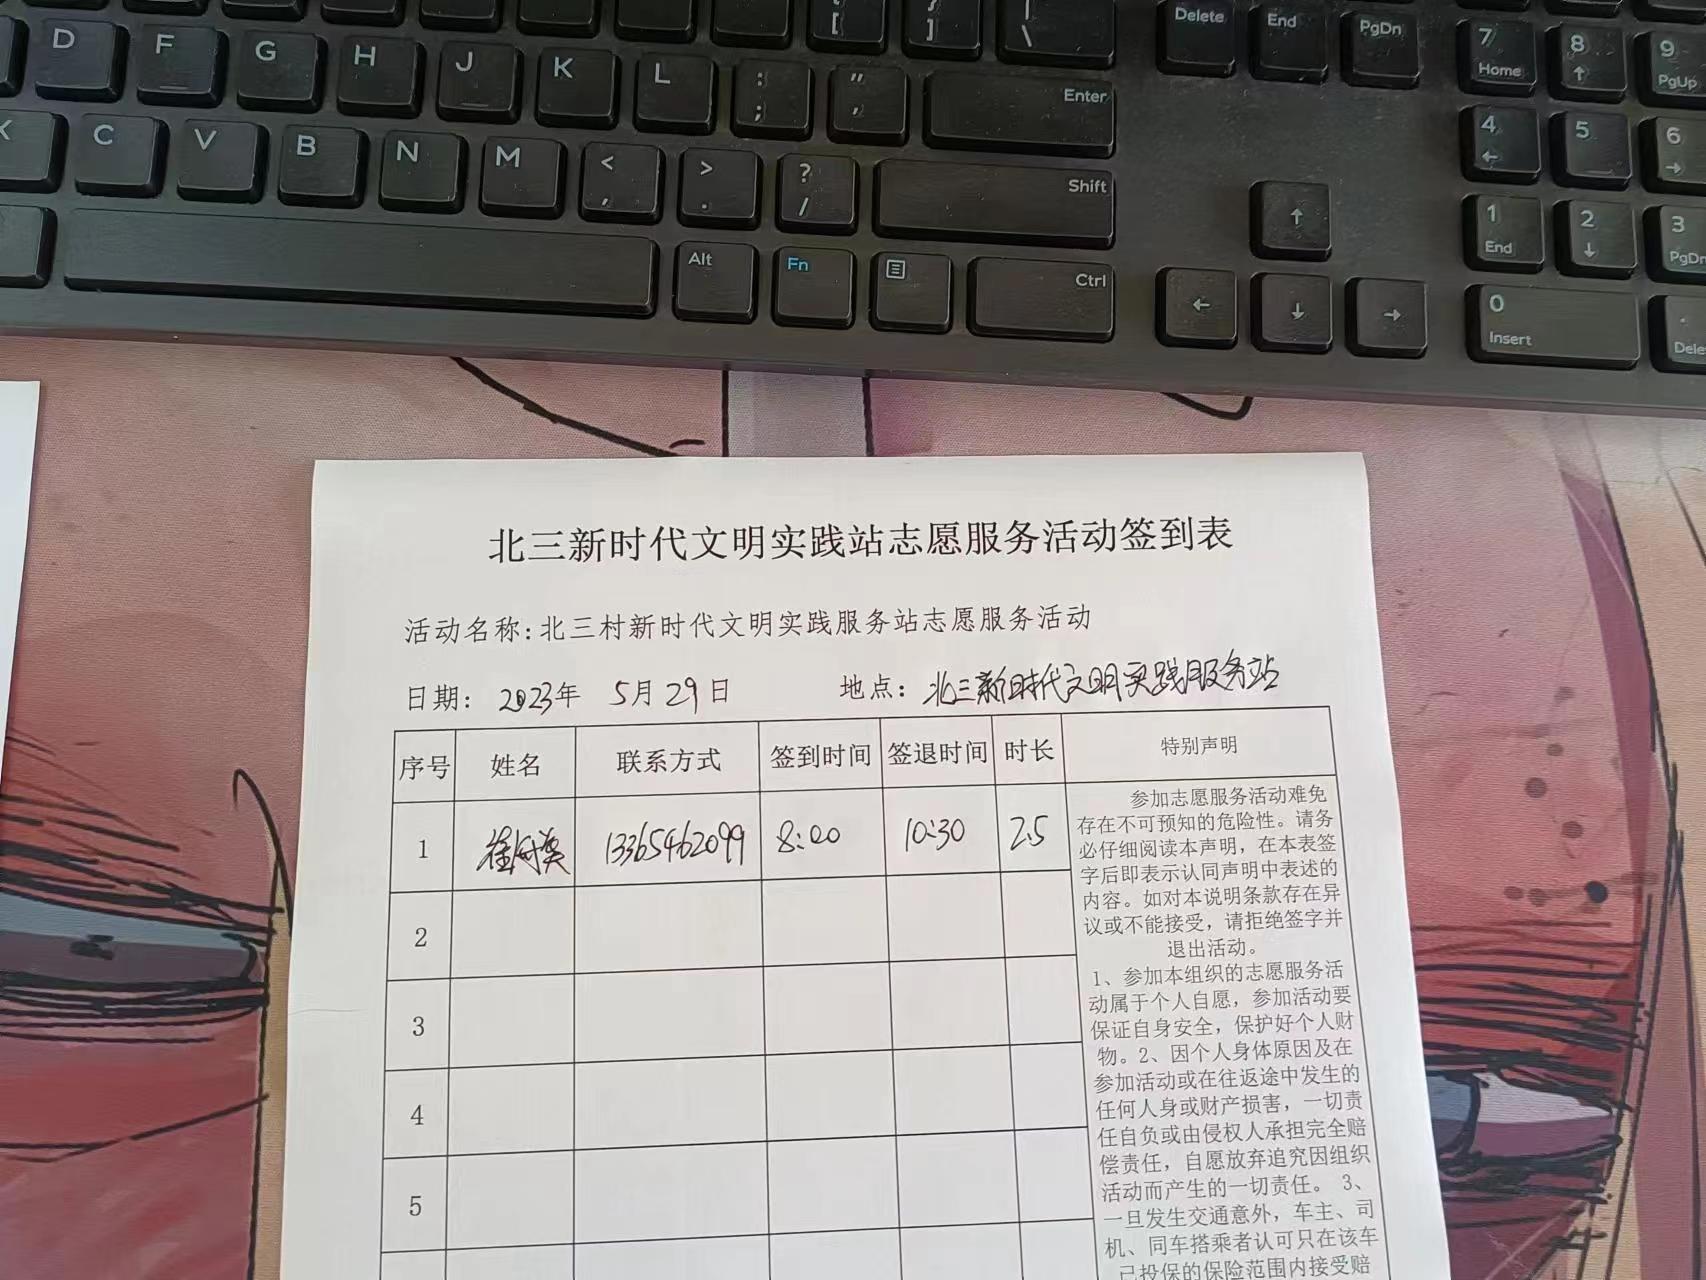 [ ] \
Delete End PgDn
7 Home 8 9 PgUp
D F G H J K L : ; " ' Enter
4 5 6
X C V B N M < , > . ? / Shift
1 End 2 3 PgDn
Alt Fn Ctrl
0 Insert . Dele
北三新时代文明实践站志愿服务活动签到表
活动名称:北三村新时代文明实践服务站志愿服务活动
日期: 2023年 5月29日 地点: 北三新时代文明实践服务站
序号 姓名 联系方式 签到时间 签退时间 时长 特别声明
1 13365462099 8:00 10:30 2.5
2
3
4
5
参加志愿服务活动难免
存在不可预知的危险性。请务
必仔细阅读本声明,在本表签
字后即表示认同声明中表述的
内容。如对本说明条款存在异
议或不能接受,请拒绝签字并
退出活动。
1、参加本组织的志愿服务活
动属于个人自愿,参加活动要
保证自身安全,保护好个人财
物。2、因个人身体原因及在
参加活动或在往返途中发生的
任何人身或财产损害,一切责
任自负或由侵权人承担完全赔
偿责任,自愿放弃追究因组织
活动而产生的一切责任。 3、
一旦发生交通意外,车主、司
机、同车搭乘者认可只在该车
已投保的保险范围内接受赔